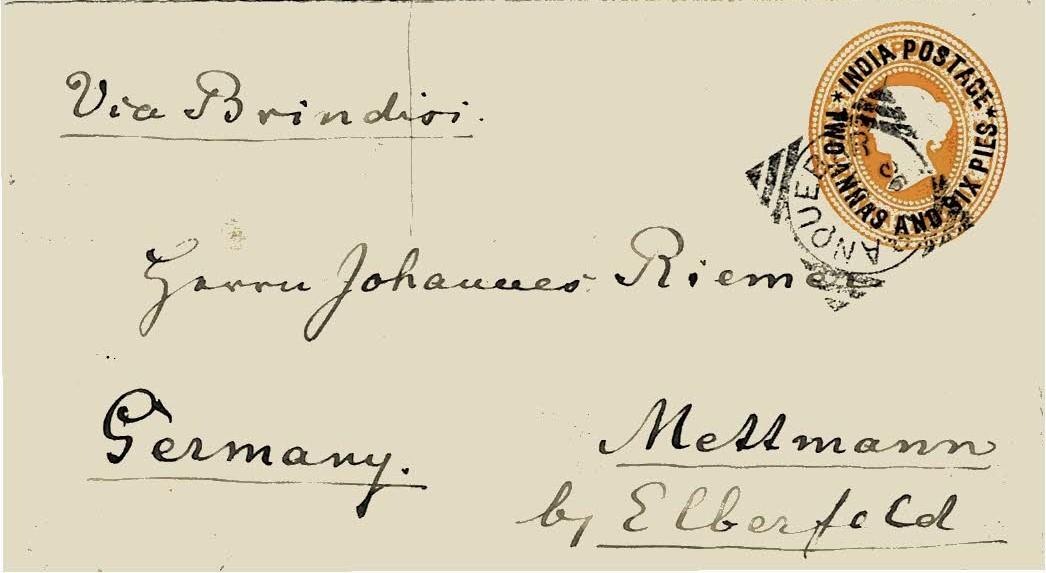 * INDIA POSTAGE *
TWO ANNAS AND SIX PIES
Via Brindisi.
ANQUEB
Herrn Johannes Riemer
Germany.
Mettmann
by Elberfeld